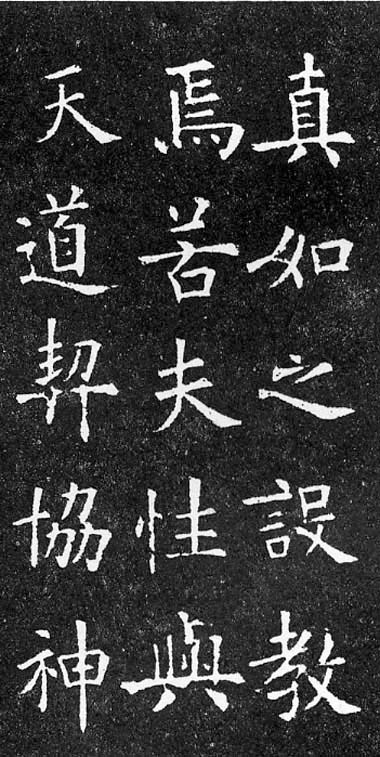 真如之設教
焉若夫性與
天道契協神